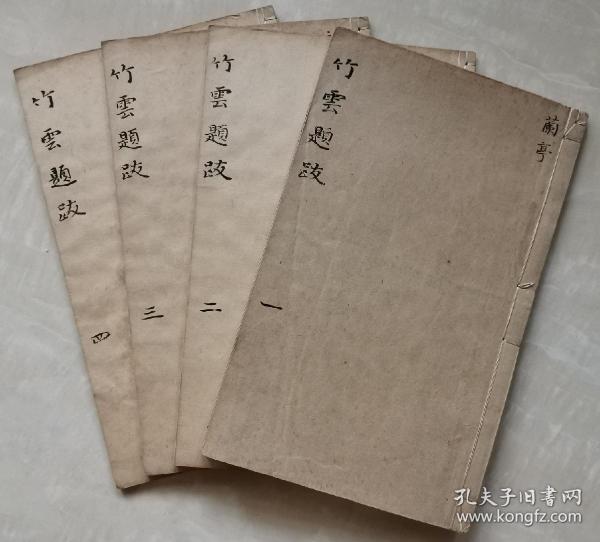 蘭亭
竹雲題跋
一
竹雲題跋
二
竹雲題跋
三
竹雲題跋
四
孔夫子旧书网
www.kongfz.com